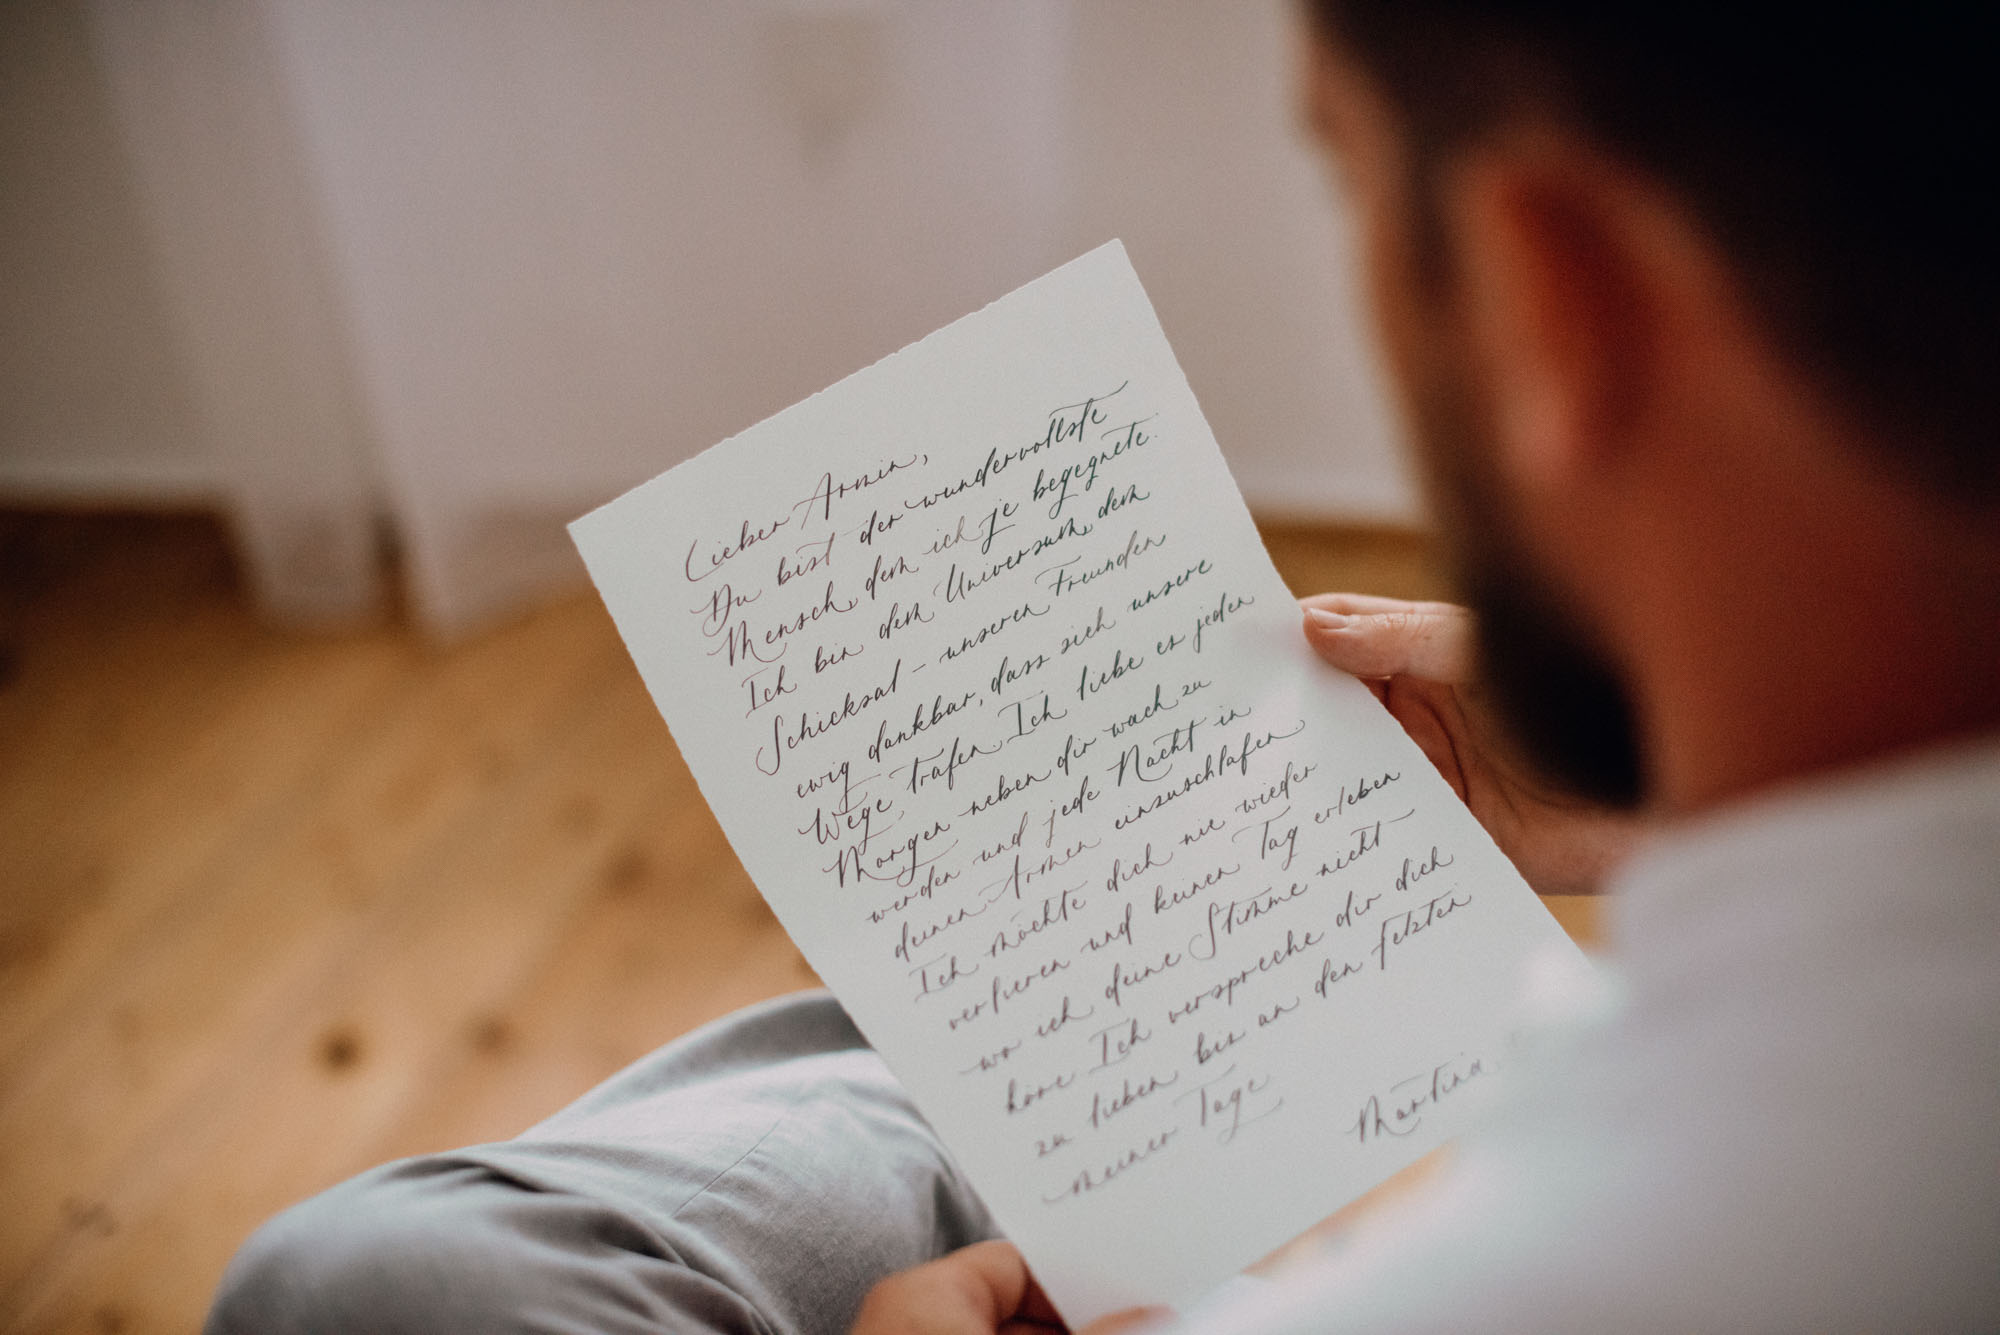 Lieber Armin,
Du bist der wundervollste
Mensch, dem ich je begegnete.
Ich bin dem Universum, dem
Schicksal – unseren Freunden
ewig dankbar, dass sich unsere
Wege trafen. Ich liebe es jeden
Morgen neben dir wach zu
werden und jede Nacht in
deinen Armen einzuschlafen
Ich möchte dich nie wieder
verlieren und keinen Tag erleben
wo ich deine Stimme nicht
höre Ich verspreche dir dich
zu lieben bis an den letzten
meiner Tage
Martina